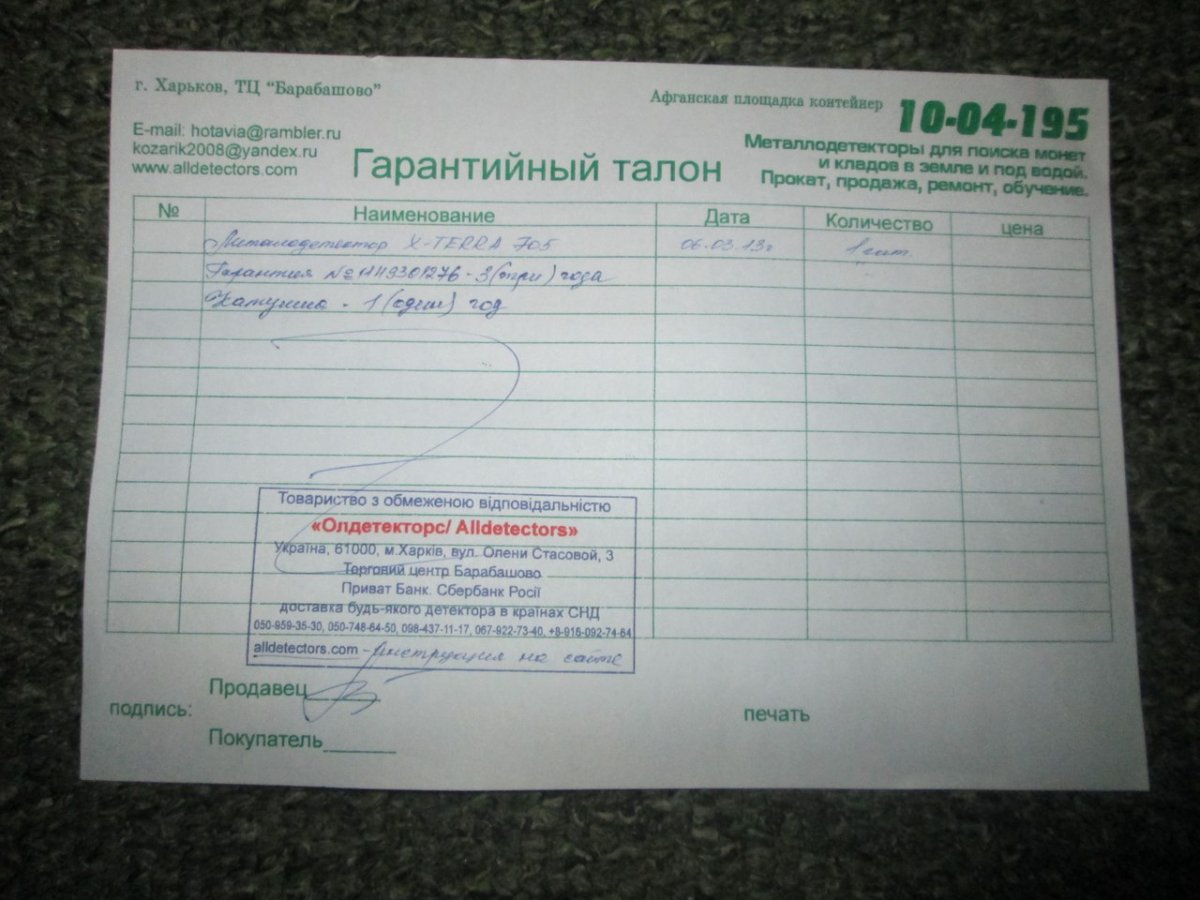 г. Харьков, ТЦ "Барабашово"
Афганская площадка контейнер 10-04-195
E-mail: hotavia@rambler.ru
kozarik2008@yandex.ru
www.alldetectors.com
Гарантийный талон
Металлодетекторы для поиска монет
и кладов в земле и под водой.
Прокат, продажа, ремонт, обучение.
№ Наименование Дата Количество цена
Металодетектор X-TERRA 705 06.03.13г 1 шт.
Гарантия № - 3 (три) года
Катушка - 1 (один) год
Товариство з обмеженою відповідальністю
«Олдетекторс/ Alldetectors»
Україна, 61000, м.Харків, вул. Олени Стасовой, 3
Торговий центр Барабашово
Приват Банк. Сбербанк Росії
доставка будь-якого детектора в країнах СНД
050-959-35-30, 050-748-64-50, 098-437-11-17, 067-922-73-40, +8-916-092-74-64
alldetectors.com - Инструкция на сайте
Продавец
подпись:
печать
Покупатель